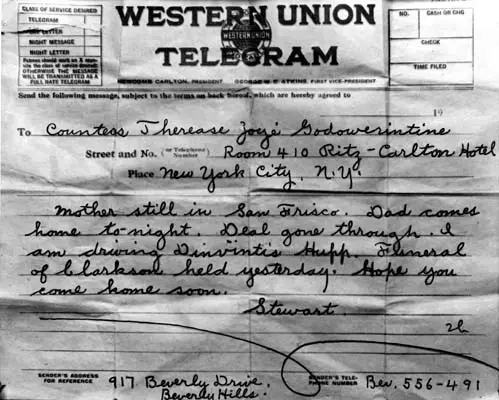 CLASS OF SERVICE DESIRED
TELEGRAM
DAY LETTER
NIGHT MESSAGE
NIGHT LETTER
Patrons should mark an X oppo-
site the class of service desired;
OTHERWISE THE MESSAGE
WILL BE TRANSMITTED AS A
FULL RATE TELEGRAM
WESTERN UNION
WESTERN UNION
TELEGRAM
NEWCOMB CARLTON, PRESIDENT GEORGE W. E. ATKINS, FIRST VICE-PRESIDENT
NO. CASH OR CHG
CHECK
TIME FILED
Send the following message, subject to the terms on back hereof, which are hereby agreed to
19
To Countess Therease Zoyé Godowerintine
Street and No. (or Telephone Number) Room 410 Ritz-Carlton Hotel
Place New York City, N.Y.
Mother still in San Frisco. Dad comes
home to-night. Deal gone through. I
am driving Dinvintis Hupp. Funeral
of Clarkson held yesterday. Hope you
come home soon.
Stewart.
SENDER'S ADDRESS
FOR REFERENCE
917 Beverly Drive,
Beverly Hills.
SENDER'S TELE-
PHONE NUMBER
Bev. 556-491